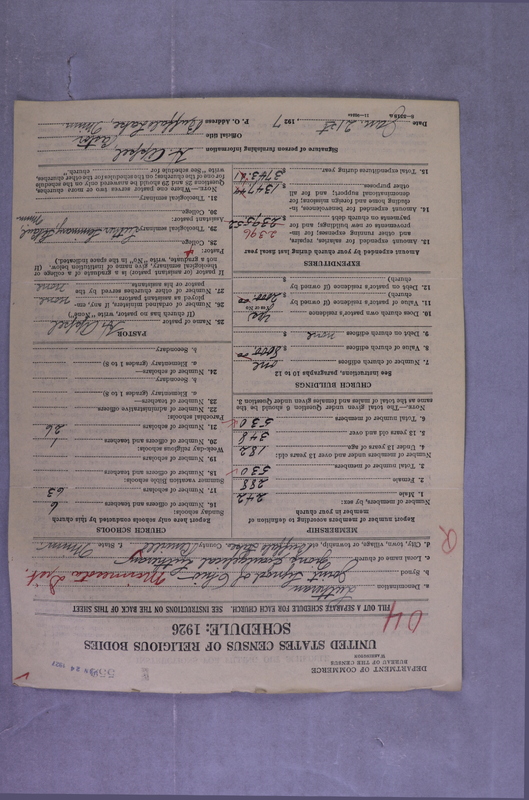 DEPARTMENT OF COMMERCE
BUREAU OF THE CENSUS
WASHINGTON
UNITED STATES CENSUS OF RELIGIOUS BODIES
SCHEDULE: 1926
D4
FILL OUT A SEPARATE SCHEDULE FOR EACH CHURCH. SEE INSTRUCTIONS ON THE BACK OF THIS SHEET
a. Denomination Lutheran
b. Synod Joint Synod of Ohio Minnesota Dist.
c. Local name of church Evangelical Lutheran
d. City, town, village, or township, etc. Buffalo Lake County Renville State Minn.
MEMBERSHIP
Report number of members according to definition of member in your church
Number of members, by sex:
1. Male 242
2. Female 288
2. Total number of members 530
Number of members under and over 13 years old:
4. Under 13 years of age 182
5. 13 years old and over 348
6. Total number of members 530
NOTE.—The total given under Question 6 should be the same as the total of males and females given under Question 3.
CHURCH BUILDINGS
See instructions, paragraphs 10 to 12
7. Number of church edifices one
8. Value of church edifices $ 8000.00
9. Debt on church edifices $ none
10. Does church own pastor's residence yes
(Yes or No)
11. Value of pastor's residence (if owned by church) $
12. Debt on pastor's residence (if owned by church) $
EXPENDITURES
Amount expended by your church during last fiscal year
13. Amount expended for salaries, repairs, and other running expenses; for improvements or new buildings; and for payments on church debt $ 2395.52
2396
14. Amount expended for benevolences, including home and foreign missions; for denominational support; and for all other purposes $
15. Total expenditures during year $ 3743.01
CHURCH SCHOOLS
Report here only schools conducted by this church
Sunday schools:
16. Number of officers and teachers 6
17. Number of scholars 63
Summer vacation Bible schools:
18. Number of officers and teachers
19. Number of scholars
Week-day religious schools:
20. Number of officers and teachers 1
21. Number of scholars 26
Parochial schools:
22. Number of administrative officers
23. Number of teachers—
a. Elementary (grades 1 to 8)
b. Secondary
24. Number of scholars—
a. Elementary (grades 1 to 8)
b. Secondary
PASTOR
25. Name of pastor
(If church has no pastor, write "None")
26. Number of ordained ministers, if any, employed as assistant pastors none
27. Number of other churches served by the pastor or his assistants none
If pastor (or assistant pastor) is a graduate of a college or theological seminary, give name of institution below. (If not a graduate, write "No" in the space indicated.)
Pastor:
28. College
29. Theological seminary Luther Seminary St. Paul, Minn.
Assistant pastor:
30. College
31. Theological seminary
NOTE.—Where one pastor serves two or more churches, Questions 28 and 29 should be answered only on the schedule for one of the churches; on the schedules for the other churches, write "See schedule for church."
Signature of person furnishing information
Official title Pastor
P. O. Address Buffalo Lake, Minn.
Date Jan. 21st, 1927